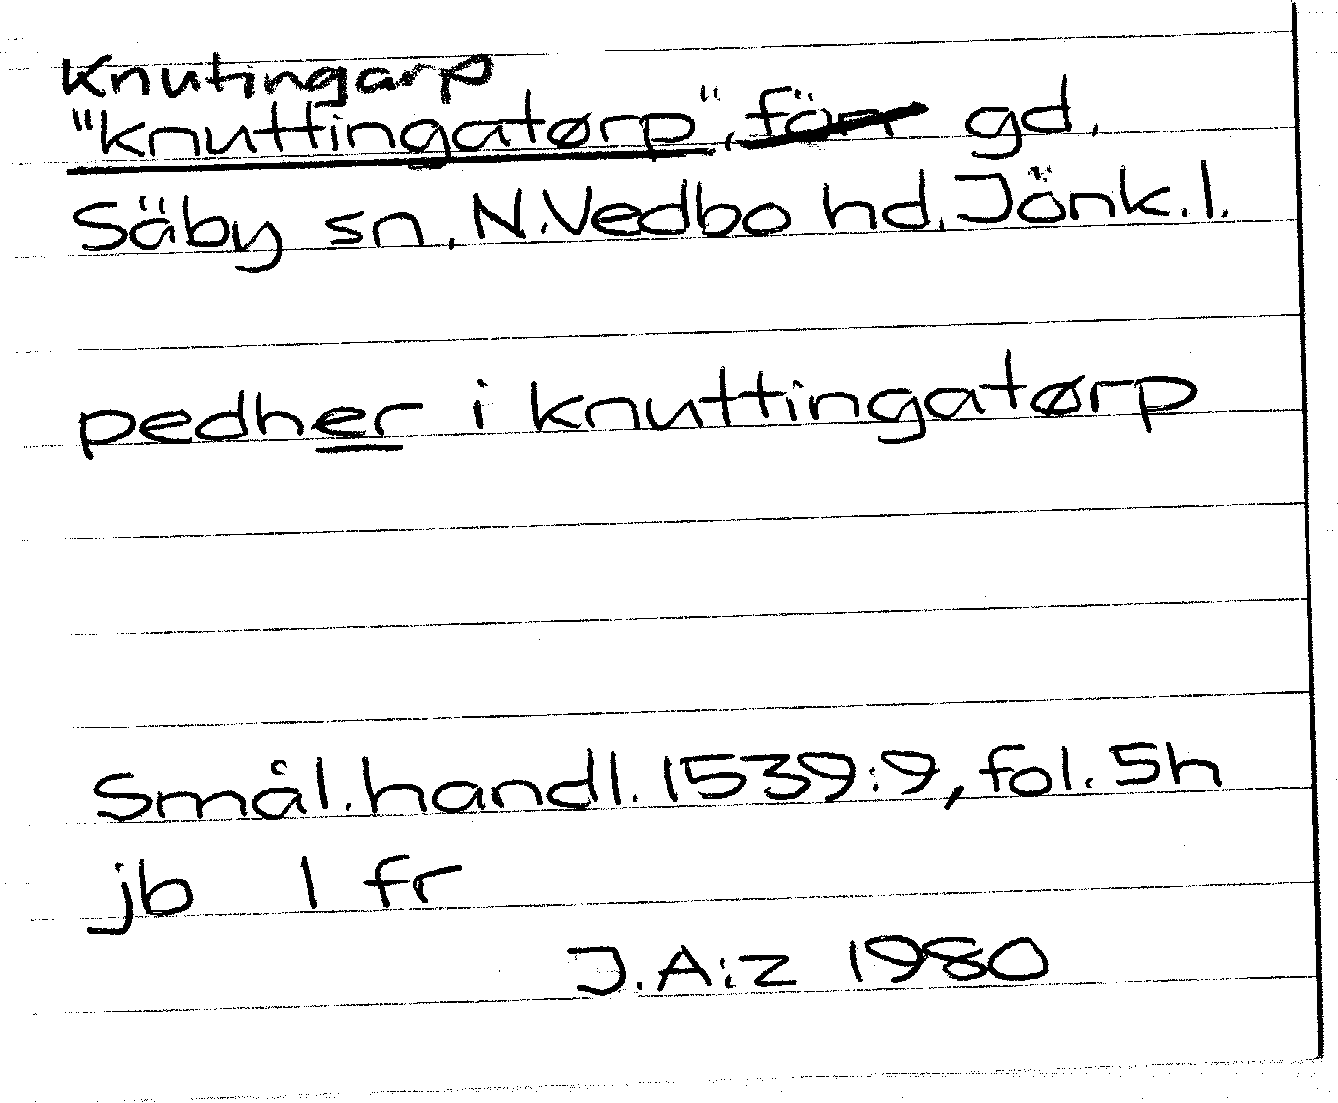 Knutingarp
"knuttingatørp", förr gd,
Säby sn, N.Vedbo hd, Jönk.l.
pedher i knuttingatørp
Smål.handl. 1539:9, fol. 5h
jb 1 fr
J.A:z 1980